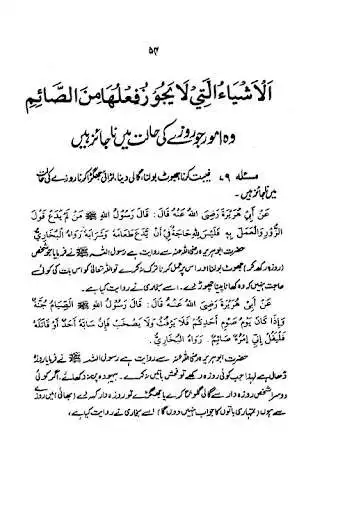 ۵۴
اَلْاَشْیَاءُ الَّتِیْ لَا یَجُوْزُ فِعْلُهَا مِنَ الصَّائِمِ
وہ امور جو روزے کی حالت میں ناجائز ہیں
مسئلہ ۷۹ غیبت کرنا، جھوٹ بولنا، گالی دینا، لڑائی جھگڑا کرنا روزے کی حالت
میں ناجائز ہیں۔
عَنْ أَبِيْ هُرَيْرَةَ رَضِيَ اللهُ عَنْهُ قَالَ: قَالَ رَسُوْلُ اللهِ ﷺ مَنْ لَمْ يَدَعْ قَوْلَ
الزُّوْرِ وَالْعَمَلَ بِهِ فَلَيْسَ لِلّٰهِ حَاجَةٌ فِيْ أَنْ يَدَعَ طَعَامَهُ وَشَرَابَهُ رَوَاهُ الْبُخَارِيُّ
حضرت ابوہریرہ رضی اللہ عنہ سے روایت ہے رسول اللہ ﷺ نے فرمایا جو شخص
(روزہ رکھ کر) جھوٹ بولنا اور اس پر عمل کرنا ترک نہ کرے تو اللہ تعالیٰ کو اس بات کی کوئی
حاجت نہیں کہ وہ کھانا پینا چھوڑ دے۔ اسے بخاری نے روایت کیا ہے۔
عَنْ أَبِيْ هُرَيْرَةَ رَضِيَ اللهُ عَنْهُ قَالَ: قَالَ رَسُوْلُ اللهِ ﷺ اَلصِّيَامُ جُنَّةٌ
وَإِذَا كَانَ يَوْمُ صَوْمِ أَحَدِكُمْ فَلَا يَرْفُثْ وَلَا يَصْخَبْ فَإِنْ سَابَّهُ أَحَدٌ أَوْ قَاتَلَهُ
فَلْيَقُلْ إِنِّيْ امْرُؤٌ صَائِمٌ. رَوَاهُ الْبُخَارِيُّ.
حضرت ابوہریرہ رضی اللہ عنہ سے روایت ہے رسول اللہ ﷺ نے فرمایا روزہ
ڈھال ہے لہٰذا جب کوئی روزہ رکھے تو فحش باتیں نہ کرے۔ بیہودہ پن نہ دکھائے، اگر کوئی
دوسرا شخص روزہ دار سے گالی گلوچ کرے یا جھگڑے تو روزہ دار کہہ دے (بھائی) میں روزے
سے ہوں (تمہاری باتوں کا جواب نہیں دوں گا) اسے بخاری نے روایت کیا ہے۔